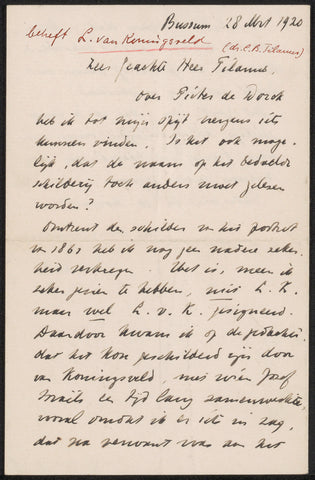 Bussum 28 Mrt 1920
betreft L. van Koningsveld
(dr. C.B. Tilanus)
Zeer Geachte Heer Tilanus,
Over Pieter de
heb ik tot mijn spijt nergens iets
kunnen vinden. Is het ook moge-
lijk, dat de naam op het bedoelde
schilderij toch anders moet gelezen
worden?
Omtrent den schilder van het portret
van 1863 heb ik nog geen nadere zeker-
heid verkregen. Het is, meen ik
zeker gezien te hebben, niet L. K.
maar wel L. v. K. gesigneerd.
Daardoor kwam ik op de gedachte,
dat het kon geschilderd zijn door
van Koningsveld, met wien Jozef
Israëls een tijd lang samenwerkte,
vooral omdat ik er iets in zag,
dat na verwant was aan het